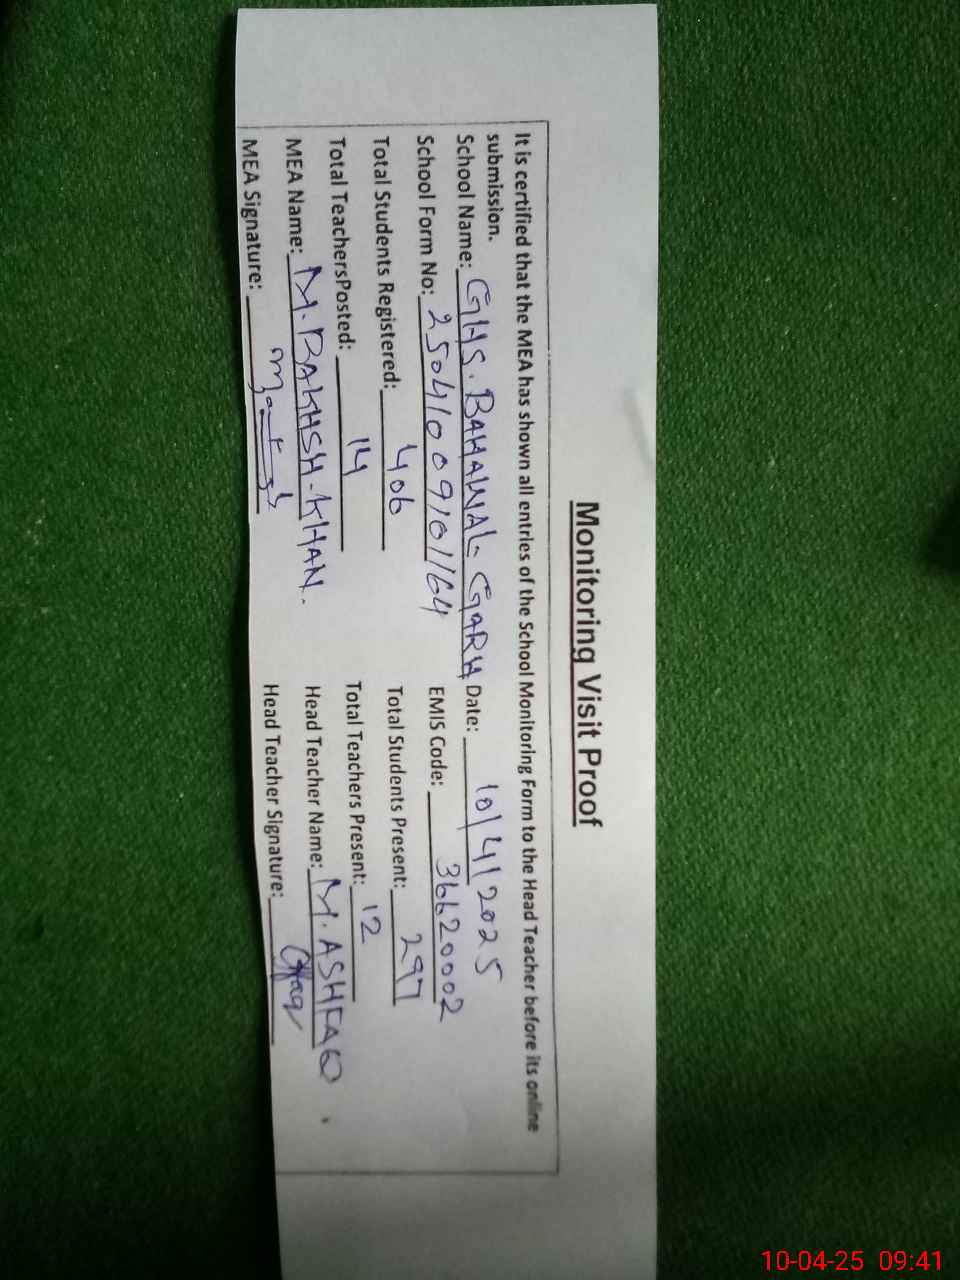 Monitoring Visit Proof
It is certified that the MEA has shown all entries of the School Monitoring Form to the Head Teacher before its online
submission.
School Name: GHS. BAHAWAL. GARH Date: 10/4/2025
School Form No: 25041009101164 EMIS Code: 36620002
Total Students Registered: 406 Total Students Present: 297
Total TeachersPosted: 14 Total Teachers Present: 12
MEA Name: M. BAKHSH. KHAN. Head Teacher Name: M. ASHFAQ.
MEA Signature: Head Teacher Signature:
10-04-25 09:41